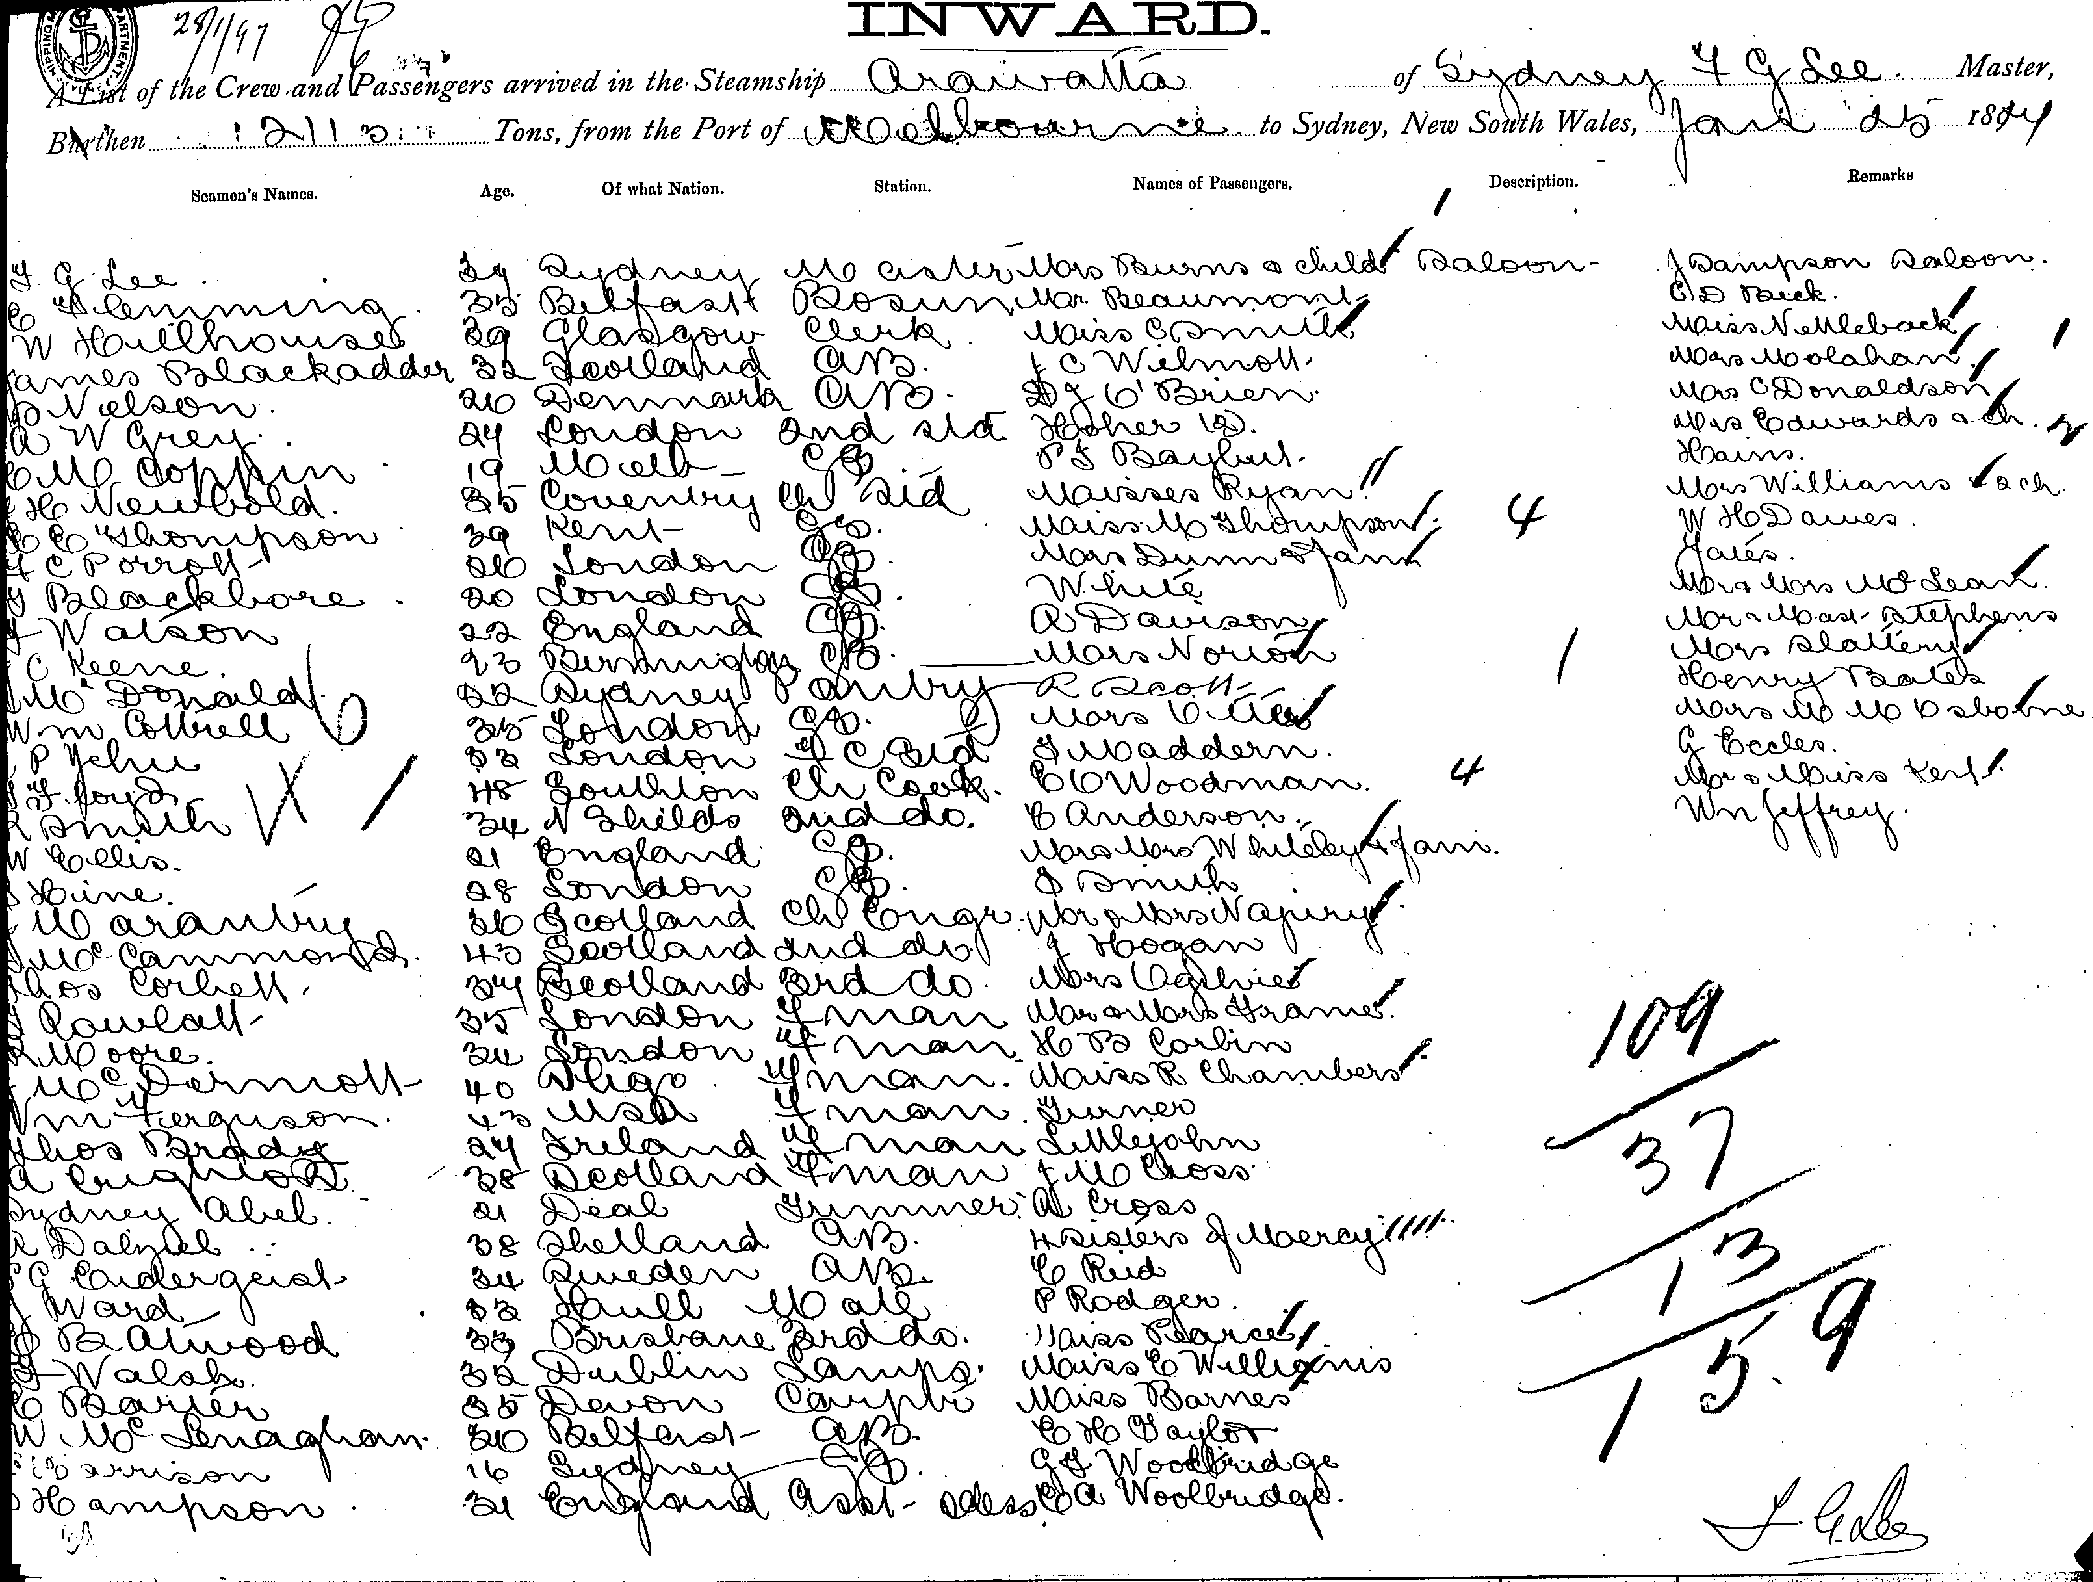 INWARD.
28/1/97
A List of the Crew and Passengers arrived in the Steamship Arawatta of Sydney F G Lee Master,
Burthen 2113 Tons, from the Port of Melbourne to Sydney, New South Wales, Jan 25 189
Seamen's Names. Age. Of what Nation. Station. Names of Passengers. Description. Remarks
F. G Lee 39 Sydney Master Mrs Burns & child Saloon J Sampson Saloon.
Flemming 35 Belfast Bosun Mr Beaumont C D Bick.
W Hillhouse 29 Glasgow Clerk Miss C Smith Miss Nettleback
James Blackadder 32 Scotland AB. J C Wilmott Mrs Molahan
Nielson 26 Denmark AB. D J O'Brien Mrs C Donaldson
A W Grey 24 London 2nd Std Hoher Mrs Edwards & ch.
M Coppin 19 Melb P J Baylut Hains.
H Newbold. 35 Coventry Ch Std Misses Ryan Mrs Williams & ch.
Thompson 39 Kent Miss M Thompson 4 W H Dawes.
C Porrott 26 London Mrs Dunn & fam Yates.
Blackbore 20 London White Mr & Mrs McLean
Watson 22 England A Davison Mr & Mast Stephens
C Keene. 23 Birmingham Mrs Norton 1 Mrs Slattery
McDonald 22 Sydney Pantry R Scott Henry Bates
Wm Cottrell 35 London Mrs Mrs M M Osborne
P Jehu 33 London F C Std J Maddern. G Eccles.
48 Southton Ch Cook. E C Woodman. 4 Mr & Miss Kerr
Smith 34 N Shields 2nd do. C Anderson. Wm Jeffrey.
W Ellis. 21 England Mr & Mrs Whiteley & fam.
Hine. 28 London Smith
26 Scotland Ch Engr. Mr & Mrs Napier
McCammond 43 Scotland 2nd do J Hogan
Thos Corbett 34 Scotland 3rd do. Mrs Ogilvie
Rowlatt 35 London Fman Mr & Mrs Frame
Moore. 34 London Fman H B Corbin
McDermott 40 Sligo Fman. Miss R Chambers
Wm Ferguson. 43 USA Fman Turner
Thos Brady 24 Ireland Fman Littlejohn
A Crighton 38 Scotland Fman J M Cross
Sydney Abel. 21 Deal Trimmer A Cross
Dalziel 38 Shetland AB. 4 Sisters of Mercy
G 34 Sweden AB. C Reid
Ward 33 Hull Mate P Rodger
B Atwood 33 Brisbane 3rd do. Miss Pearce
Walsh. 32 Dublin Lamps Miss E Williams
Barter 35 Devon Carptr Miss Barnes
W McLenaghan 30 Belfast AB. C H Taylor
Harrison 16 Sydney G J Woolbridge
Hampson 31 England Asst Stdess E A Woolbridge.
109
37
13
159
F. G. Lee